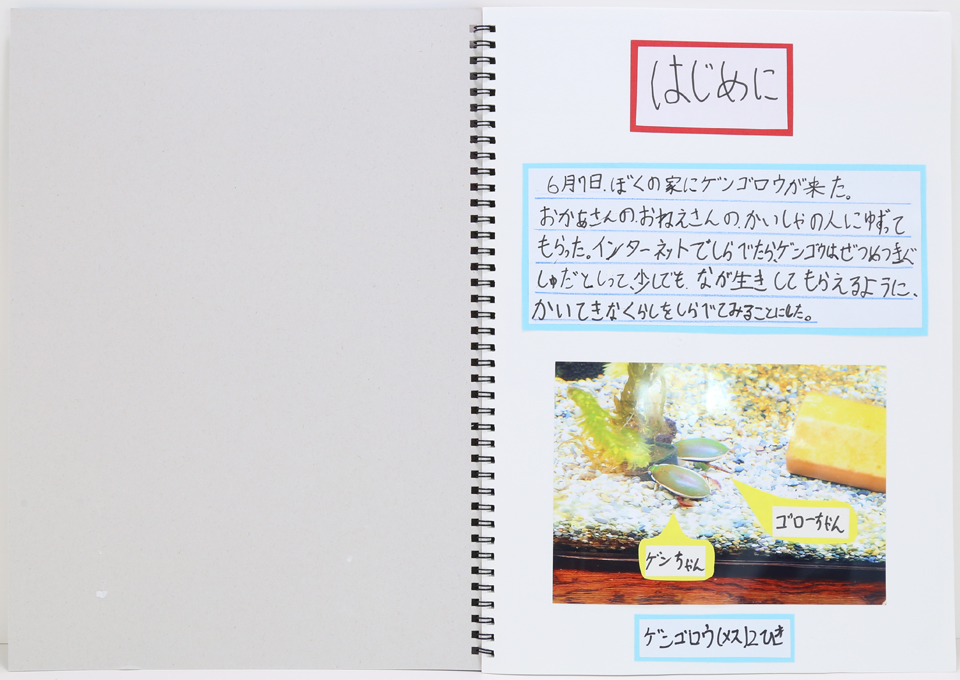 はじめに
6月7日、ぼくの家にゲンゴロウが来た。
おかあさんの、おねえさんの、かいしゃの人にゆずって
もらった。インターネットでしらべたら、ゲンゴウはぜつめつきぐ
しゅだとしって、少しでも、なが生きしてもらえるように、
かいてきなくらしをしらべてみることにした。
ゴローちゃん
ゲンちゃん
ゲンゴロウ(メス)2ひき